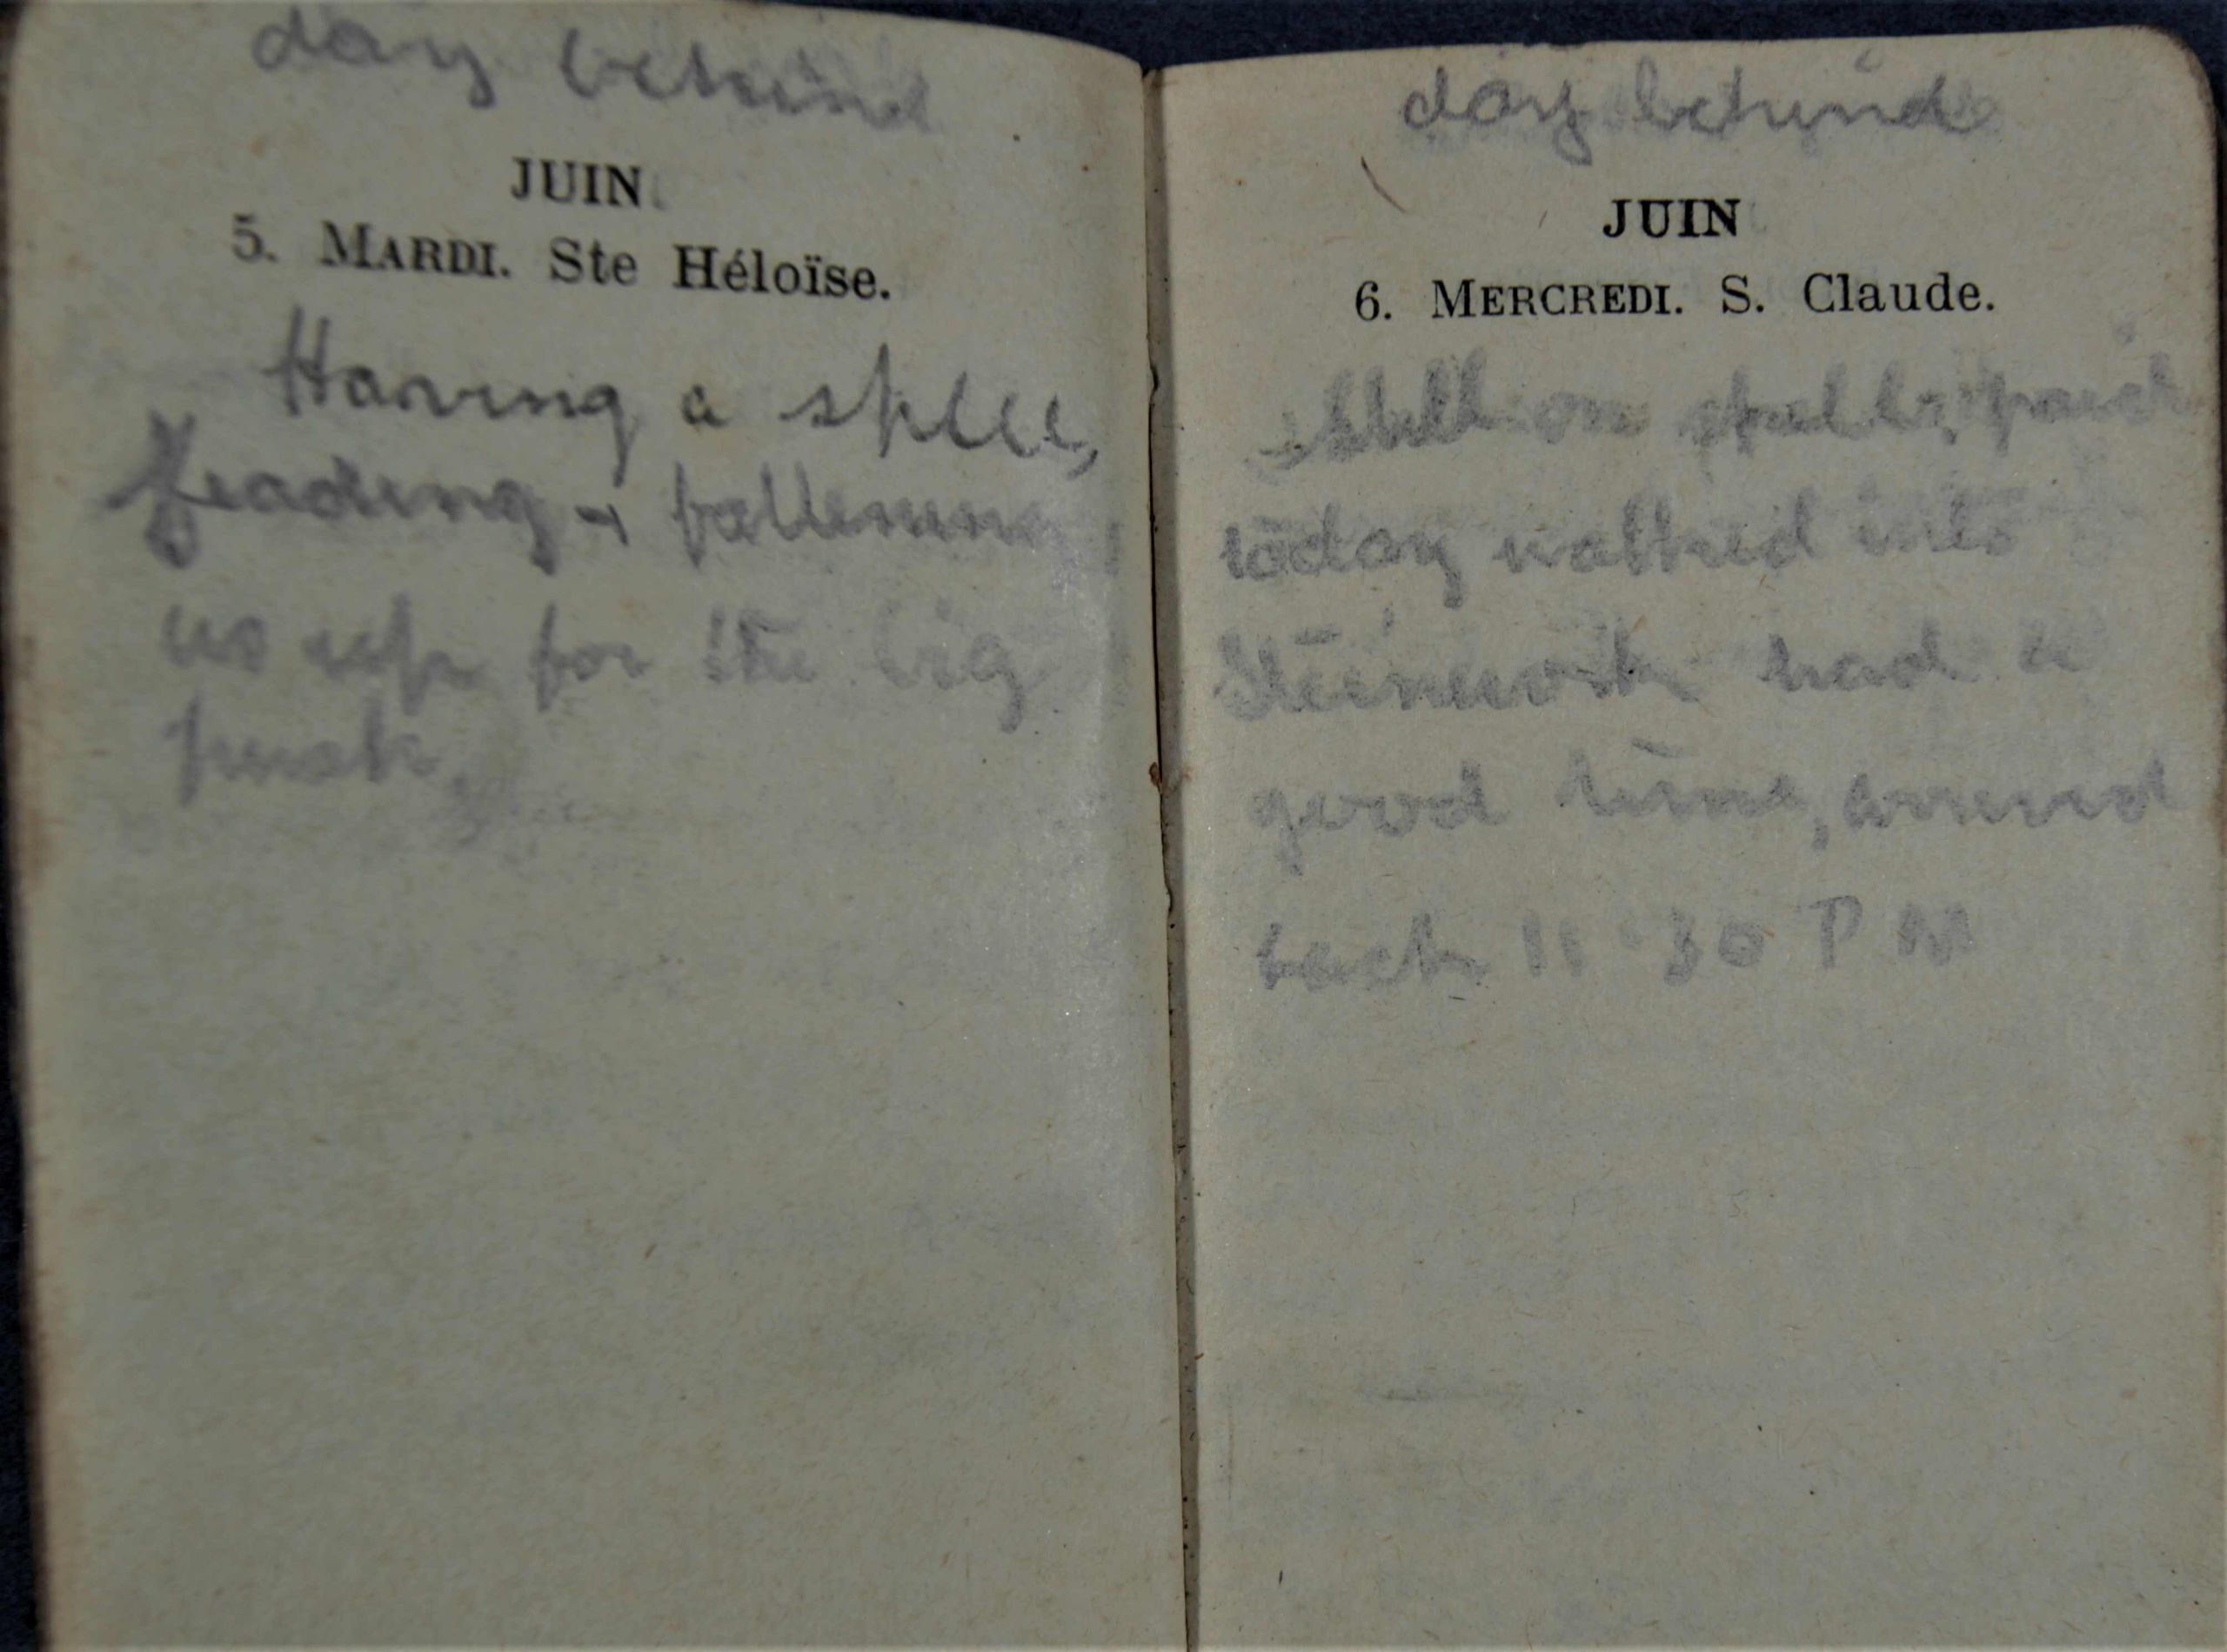 day behind
JUIN
5. MARDI. Ste Héloïse.
Having a spell,
feading + fattening
us up for the big
push.
day behind
JUIN
6. MERCREDI. S. Claude.
Still on spell, paid
today walked into
Steenwerk had a
good time, arrived
back 11.30 PM